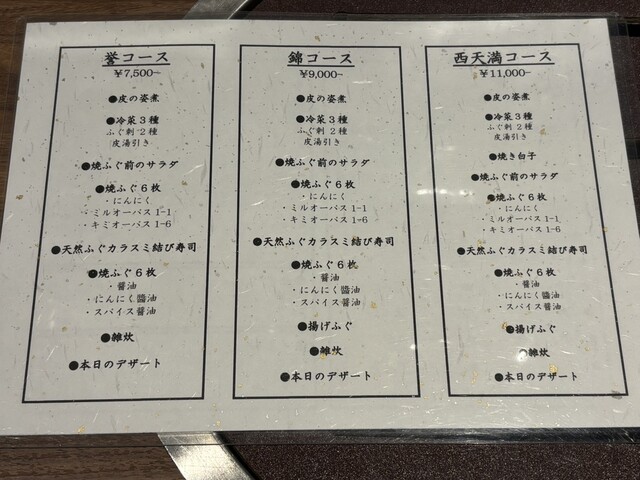 誉コース
￥7,500-
●皮の姿煮
●冷菜３種
ふぐ刺２種
皮湯引き
●焼ふぐ前のサラダ
●焼ふぐ６枚
・にんにく
・ミルオーパス 1-1
・キミオーパス 1-6
●天然ふぐカラスミ結び寿司
●焼ふぐ６枚
・醤油
・にんにく醬油
・スパイス醤油
●雑炊
●本日のデザート
錦コース
￥9,000-
●皮の姿煮
●冷菜３種
ふぐ刺 ２種
皮湯引き
●焼ふぐ前のサラダ
●焼ふぐ６枚
・にんにく
・ミルオーパス 1-1
・キミオーパス 1-6
●天然ふぐカラスミ結び寿司
●焼ふぐ６枚
・醤油
・にんにく醬油
・スパイス醤油
●揚げふぐ
●雑炊
●本日のデザート
西天満コース
￥11,000-
●皮の姿煮
●冷菜３種
ふぐ刺 ２種
皮湯引き
●焼き白子
●焼ふぐ前のサラダ
●焼ふぐ６枚
・にんにく
・ミルオーパス 1-1
・キミオーパス 1-6
●天然ふぐカラスミ結び寿司
●焼ふぐ６枚
・醤油
・にんにく醬油
・スパイス醤油
●揚げふぐ
●雑炊
●本日のデザート